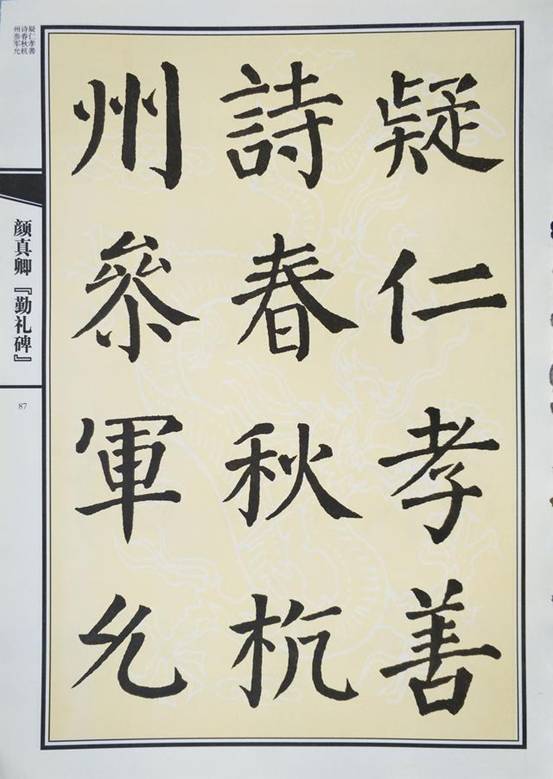 疑仁孝善
詩春秋杭
州參軍允
疑仁孝善
诗春秋杭
州参军允
颜真卿『勤礼碑』
87